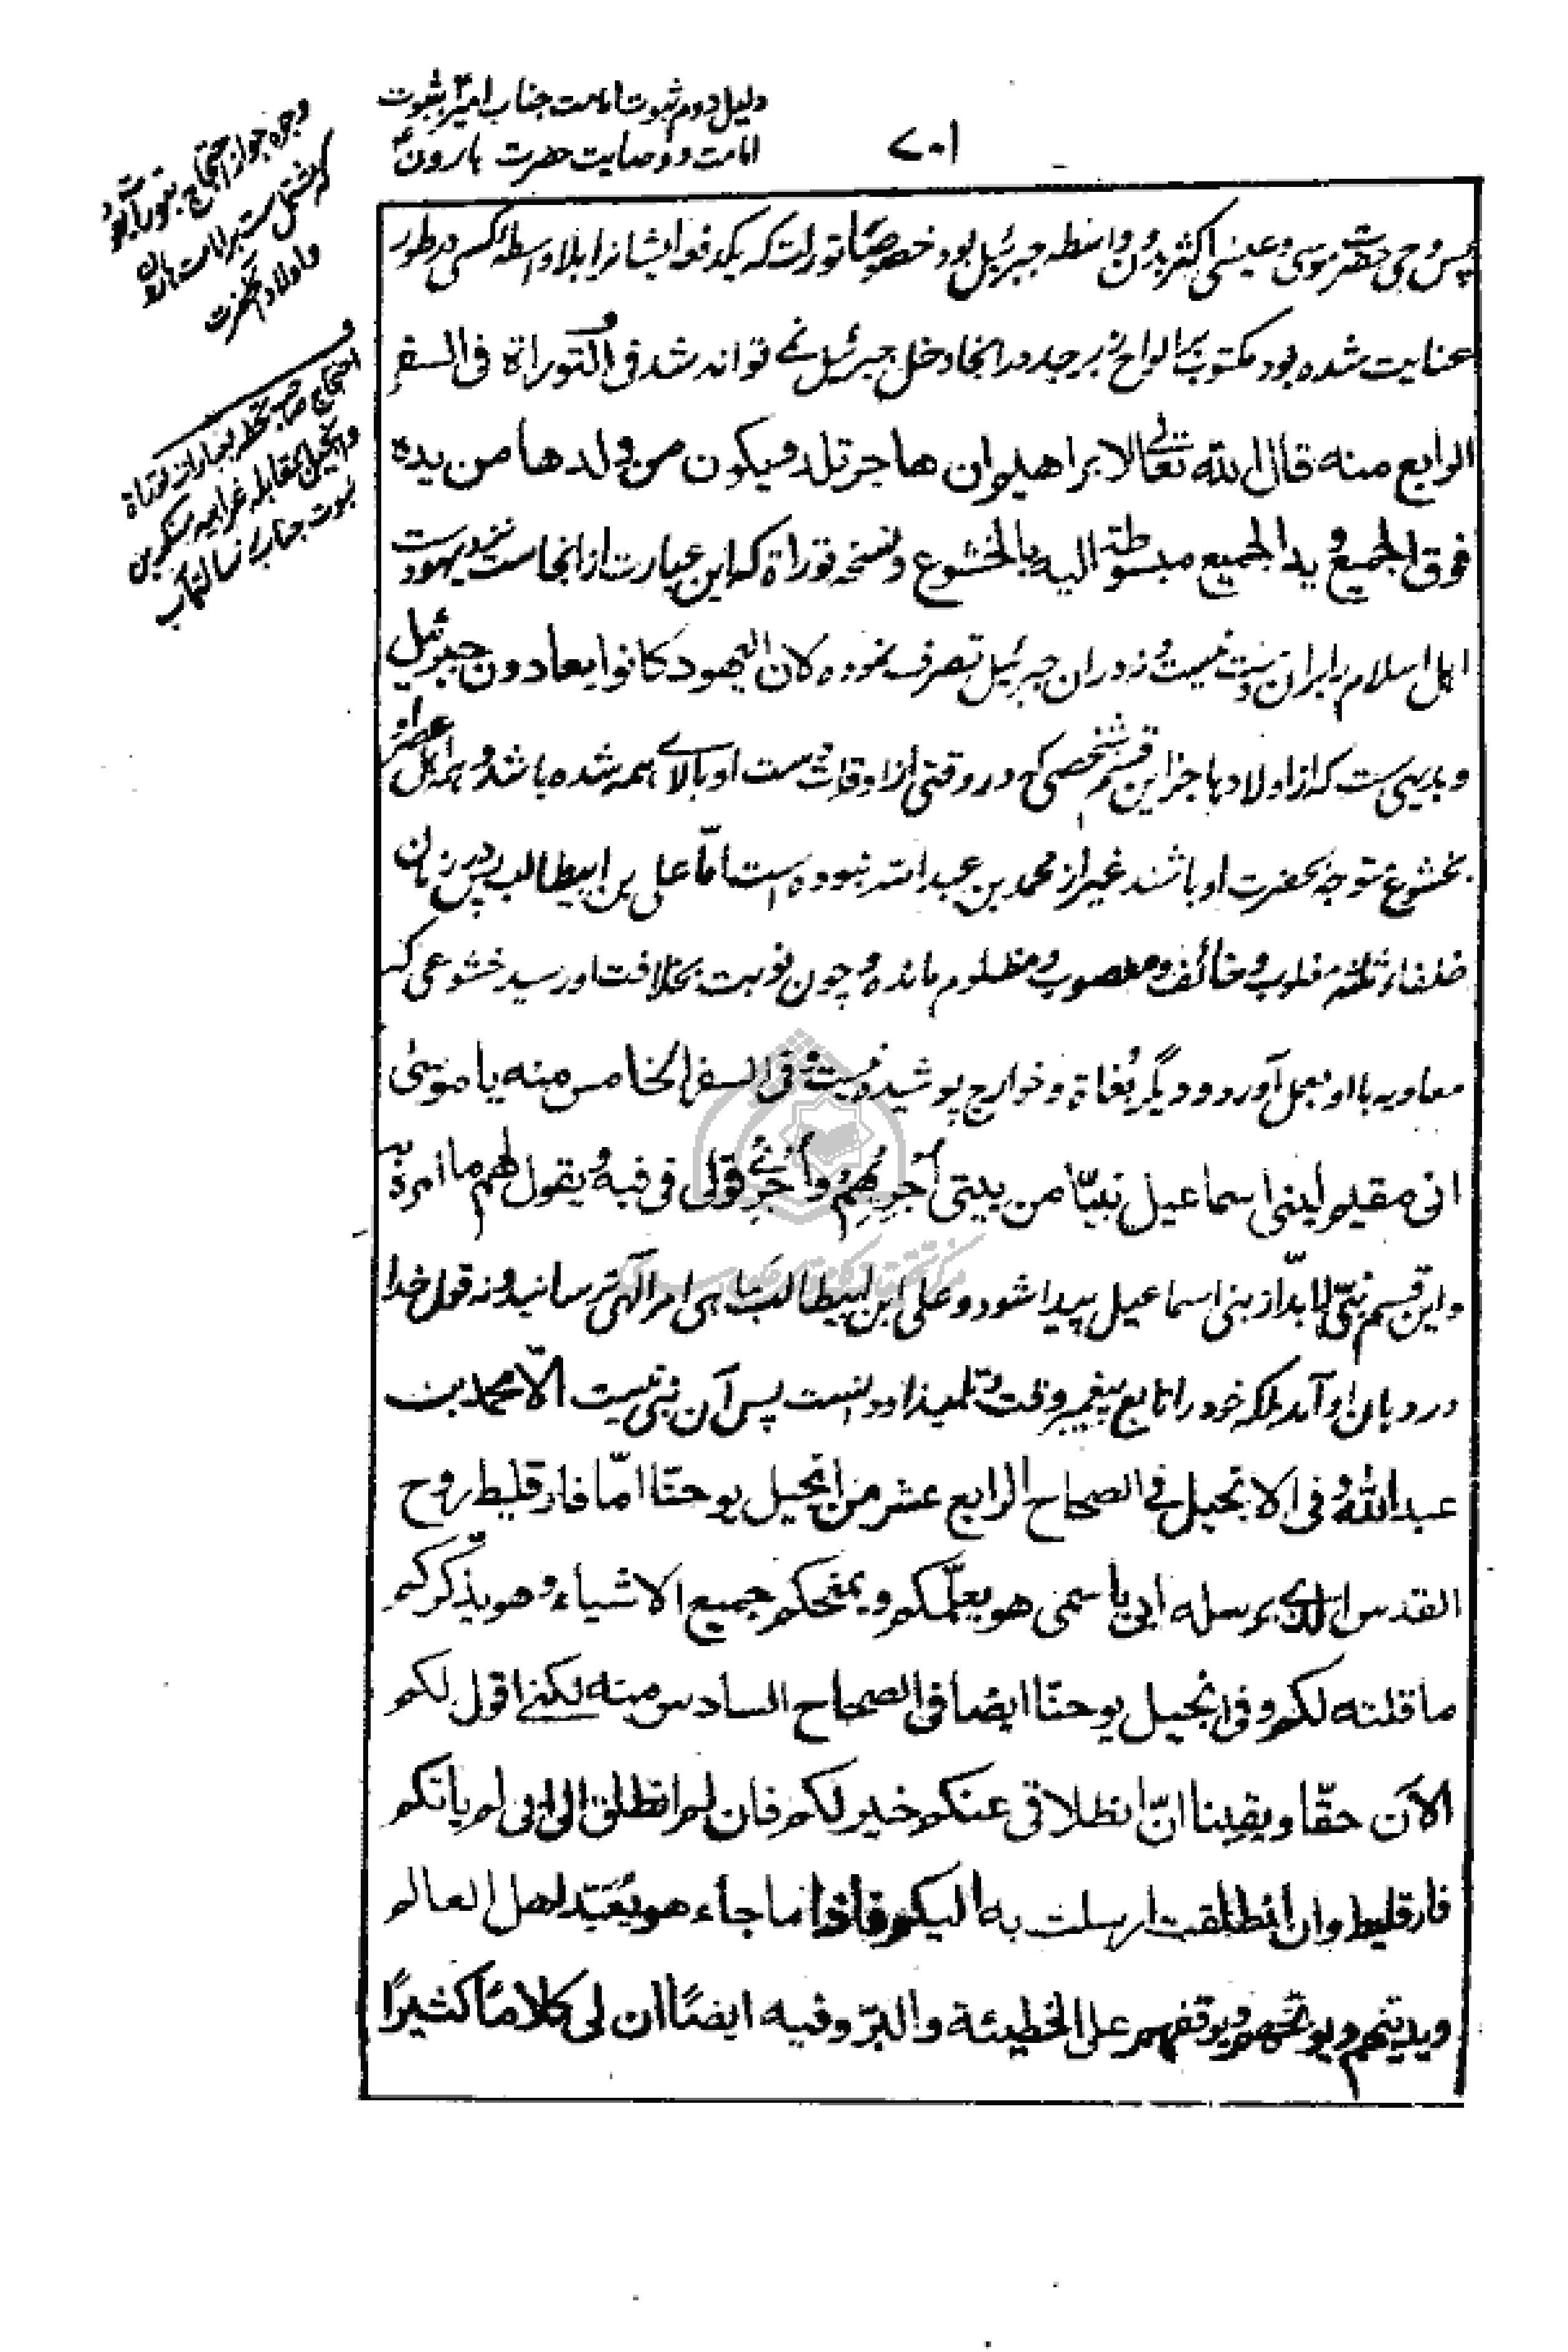 دلیل دوم ثبوت امامت جناب امیرؑ بثبوت
امامت و وصایت حضرت ہارونؑ
۷۰۱
وجوہ جواز احتجاج بتوراة
کہ مشتمل ست بر امامت ہارون
و اولاد آنحضرت
و
احتجاج صاحب تحفہ بعبارات توراة
و انجیل بمقابلہ غرابیہ منکرین
نبوت جناب رسالتمآب
پس وحی حضرت موسی و عیسی اکثر بدون واسطہ جبرئیل بود خصوصًا تورات کہ یکدفعہ ایشانرا بلا واسطۂ کسی در طور
عنایت شدہ بود مکتوب بالواح زبرجد در انجا دخل جبرئیل نے تواند شد و فی التوراة فی السفر
الرابع منه قال الله تعالی لابراهیم ان هاجر تلد و یکون من ولدها من یده
فوق الجمیع و ید الجمیع مبسوطة الیه بالخشوع و نسخہ توراة کہ این عبارت از انجاست نزد یهودست
اہل اسلام را بران دست نیست و نہ دران جبرئیل تصرف نمودہ لان الیهود کانوا یعادون جبرئیل
و بدیہی ست کہ از اولاد ہاجر این قسم شخصی کہ در وقتی از اوقات دست او بالاے ہمہ شدہ باشد و ہمہ اہل عصر او
بخشوع متوجہ بحضرت او باشند غیر از محمد بن عبد اللہ نبودہ است امّا علی بن ابیطالب پس در زمان
خلفاء ثلثہ مغلوب و خائف و مغصوب و مظلوم ماندہ و چون نوبت بخلافت او رسید خشوعی کہ
معاویہ با او بعمل آورد و دیگر بُغاة و خوارج پوشیدہ نیست و فی السفر الخامس منه یا موسیٰ
انی مقیم لبنی اسماعیل نبیّا من بیتی اُجرِیهم و اُجرِیْ قولی فی فیه و یقول لهم ما امره به
و این قسم نبیّ لابدّ از بنی اسماعیل پیدا شود و علی ابن ابیطالب گاہی امر الٰہی نرسانید و نہ قول خدا
در دہان او آمد بلکہ خود را تابع پیغمبر وقت و تلمیذ او دانست پس آن نبی نیست الّا محمد بن
عبد الله و فی الانجیل فی الصحاح الرابع عشر من انجیل یوحنّا امّا فارقلیط روح
القدس الذی یرسله ابی باسمی هو یعلّمکم و یمنحکم جمیع الاشیاء و هو یذکّرکم
ما قلته لکم و فی انجیل یوحنّا ایضا فی الصحاح السادس منه لکنی اقول لکم
الآن حقّا و یقینا انّ انطلاقی عنکم خیر لکم فان لم انطلق الی ابی لم یاتکم
فارقلیط و ان انطلقت ارسلت به الیکم فاذا ما جاء هو یفیّد اهل العالم
و یدینهم و یوبّخهم و یوقفهم علی الخطیئة و البرّ و فیه ایضًا ان لی کلامًا کثیرًا